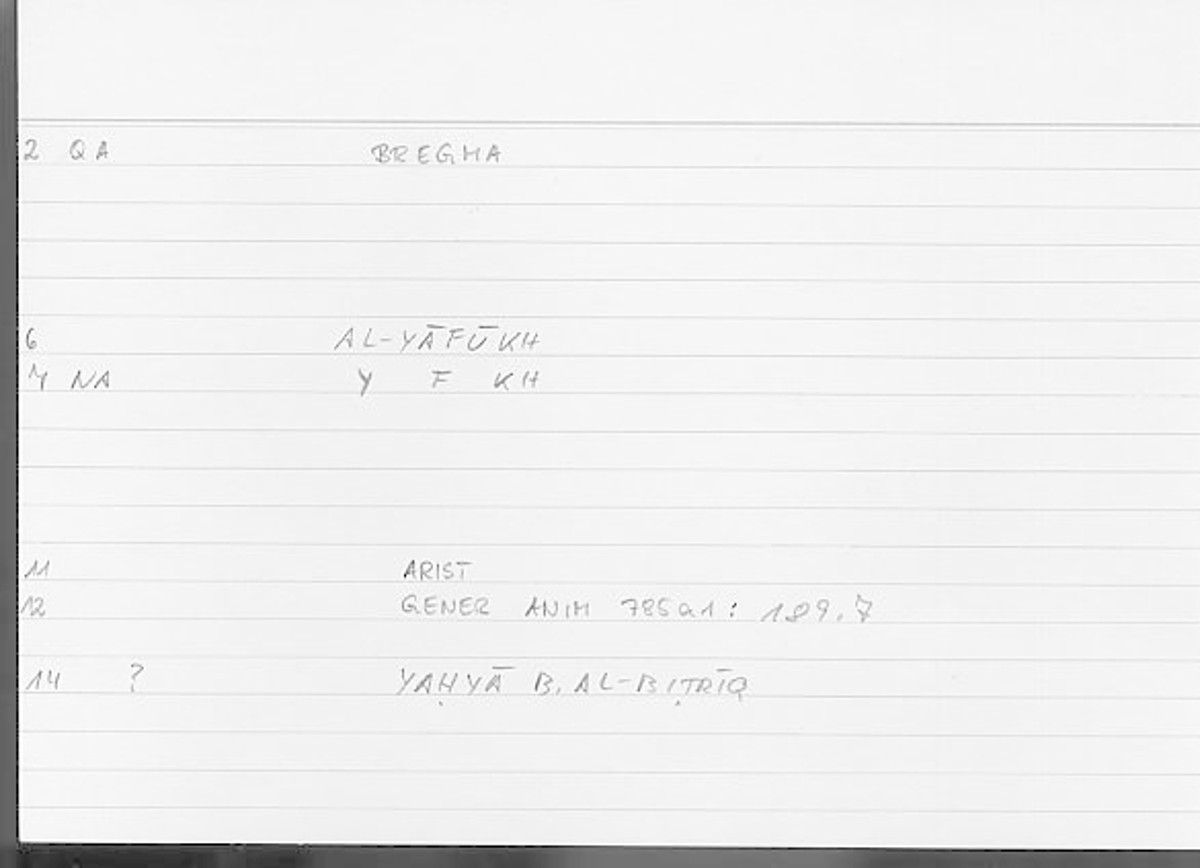 2 QA BREGMA
6 AL-YĀFŪKH
7 NA Y F KH
11 ARIST
12 GENER ANIM 785a1: 189.7
14 ? YAḤYĀ B. AL-BIṬRĪQ